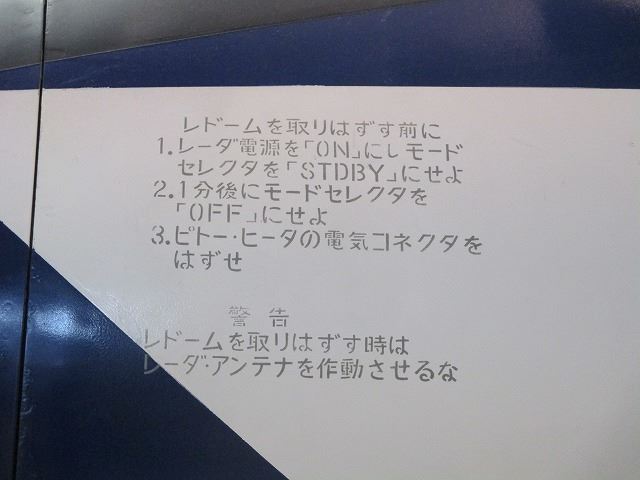 レドームを取りはずす前に
1.レーダ電源を「ON」にしモード
セレクタを「STDBY」にせよ
2.1分後にモードセレクタを
「OFF」にせよ
3.ピトー・ヒータの電気コネクタを
はずせ
警告
レドームを取りはずす時は
レーダ・アンテナを作動させるな